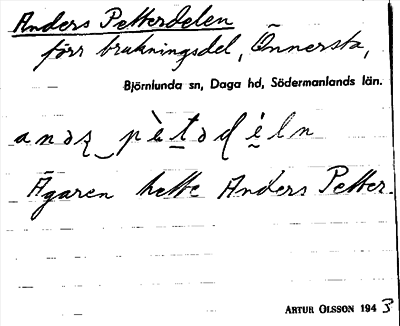 Anders Petterdelen
förr brukningsdel, Önnersta,
Björnlunda sn, Daga hd, Södermanlands län.
anəʐ‿pètədéln
Ägaren hette Anders Petter.
ARTUR OLSSON 1943